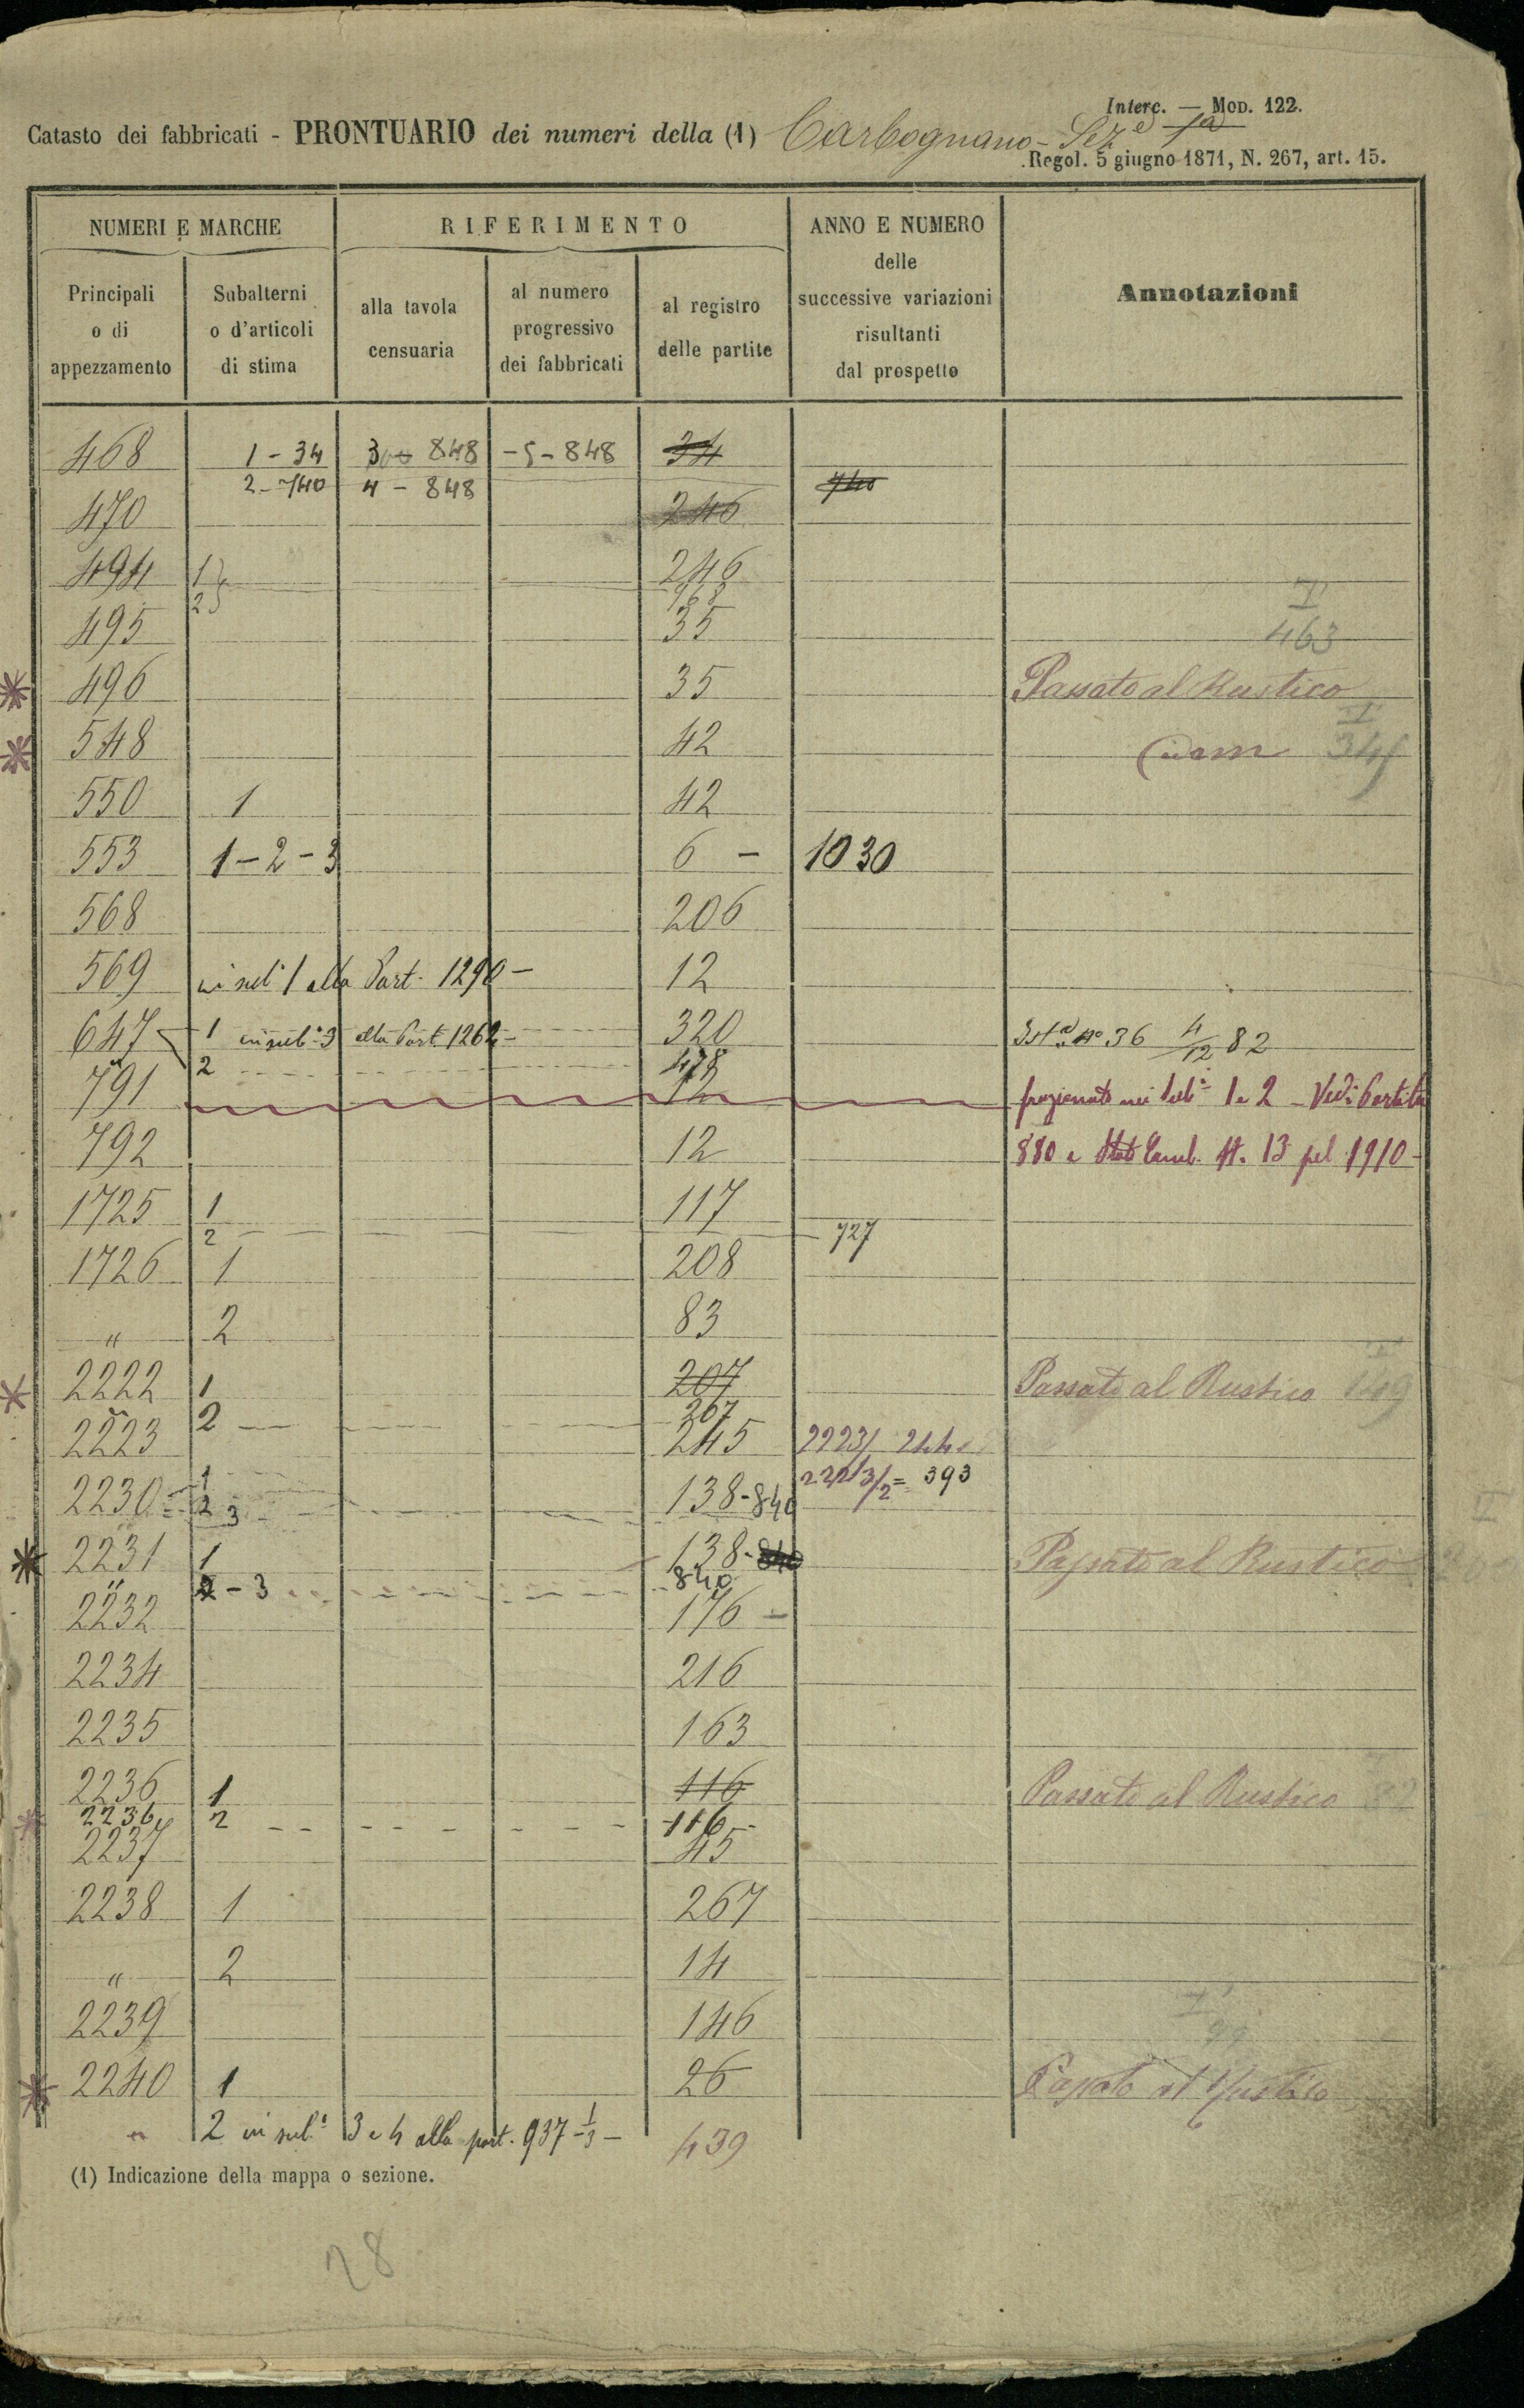 Interc. — Mod. 122.
Catasto dei fabbricati - PRONTUARIO dei numeri della (1) Carbognano - Sez.e 1a
Regol. 5 giugno 1871, N. 267, art. 15.
NUMERI E MARCHE RIFERIMENTO ANNO E NUMERO delle successive variazioni risultanti dal prospetto Annotazioni
Principali o di appezzamento Subalterni o d'articoli di stima alla tavola censuaria al numero progressivo dei fabbricati al registro delle partite
468 1 - 34 3 848 - 5 - 848 34
2 - 740 4 - 848 740
470 246
494 1 246
2 I
495 35 463
496 35 Passato al Rustico
I
548 42 idem
550 1 42
553 1 - 2 - 3 6 - 1030
568 206
569 in sub. 1 alla Part. 1290 - 12
647 1 in sub. 3 alla Part. 1262 - 320 No 36 4/12 82
2 478
791 12 frazionato nei sub. 1 e 2 - Vedi Partita
792 12 880 e Stato Camb. N. 13 pel 1910 -
1725 1 117
2 727
1726 1 208
" 2 83
2222 1 207 Passato al Rustico 149
" 2 267
2223 245 2223/
393
2230 1 138 - 840
2 3
2231 1 138 - 840 Passato al Rustico
" 2 - 3 840
2232 176 -
2234 216
2235 163
2236 1 116 Passato al Rustico
2236 2 116 -
2237 45
2238 1 267
" 2 14
2239 146
2240 1 26 Passato al Rustico
" 2 in sub. 3 e 4 alla part. 937 - 1/3 - 439
(1) Indicazione della mappa o sezione.
28